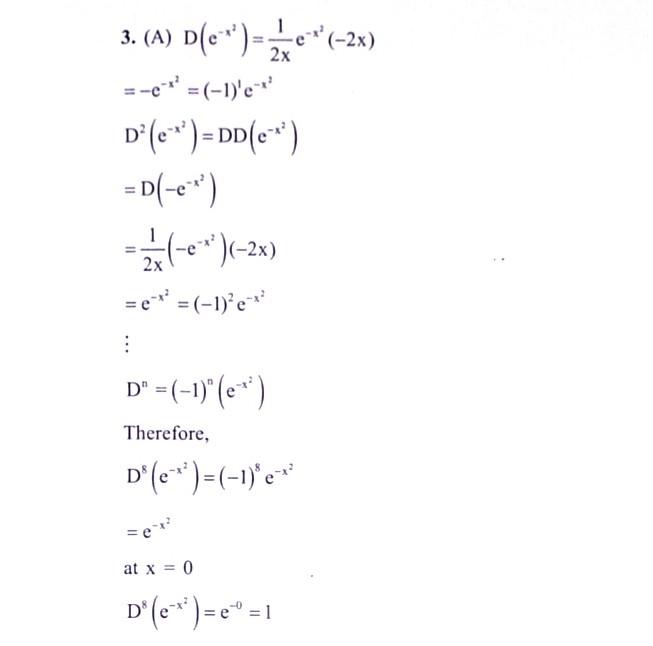 3. (A) D(e^{-x²}) = \frac{1}{2x} e^{-x²}(-2x)
= -e^{-x²} = (-1)¹e^{-x²}
D²(e^{-x²}) = DD(e^{-x²})
= D(-e^{-x²})
= \frac{1}{2x}(-e^{-x²})(-2x)
= e^{-x²} = (-1)² e^{-x²}
⋮
Dⁿ = (-1)ⁿ(e^{-x²})
Therefore,
D⁸(e^{-x²}) = (-1)⁸ e^{-x²}
= e^{-x²}
at x = 0
D⁸(e^{-x²}) = e^{-0} = 1